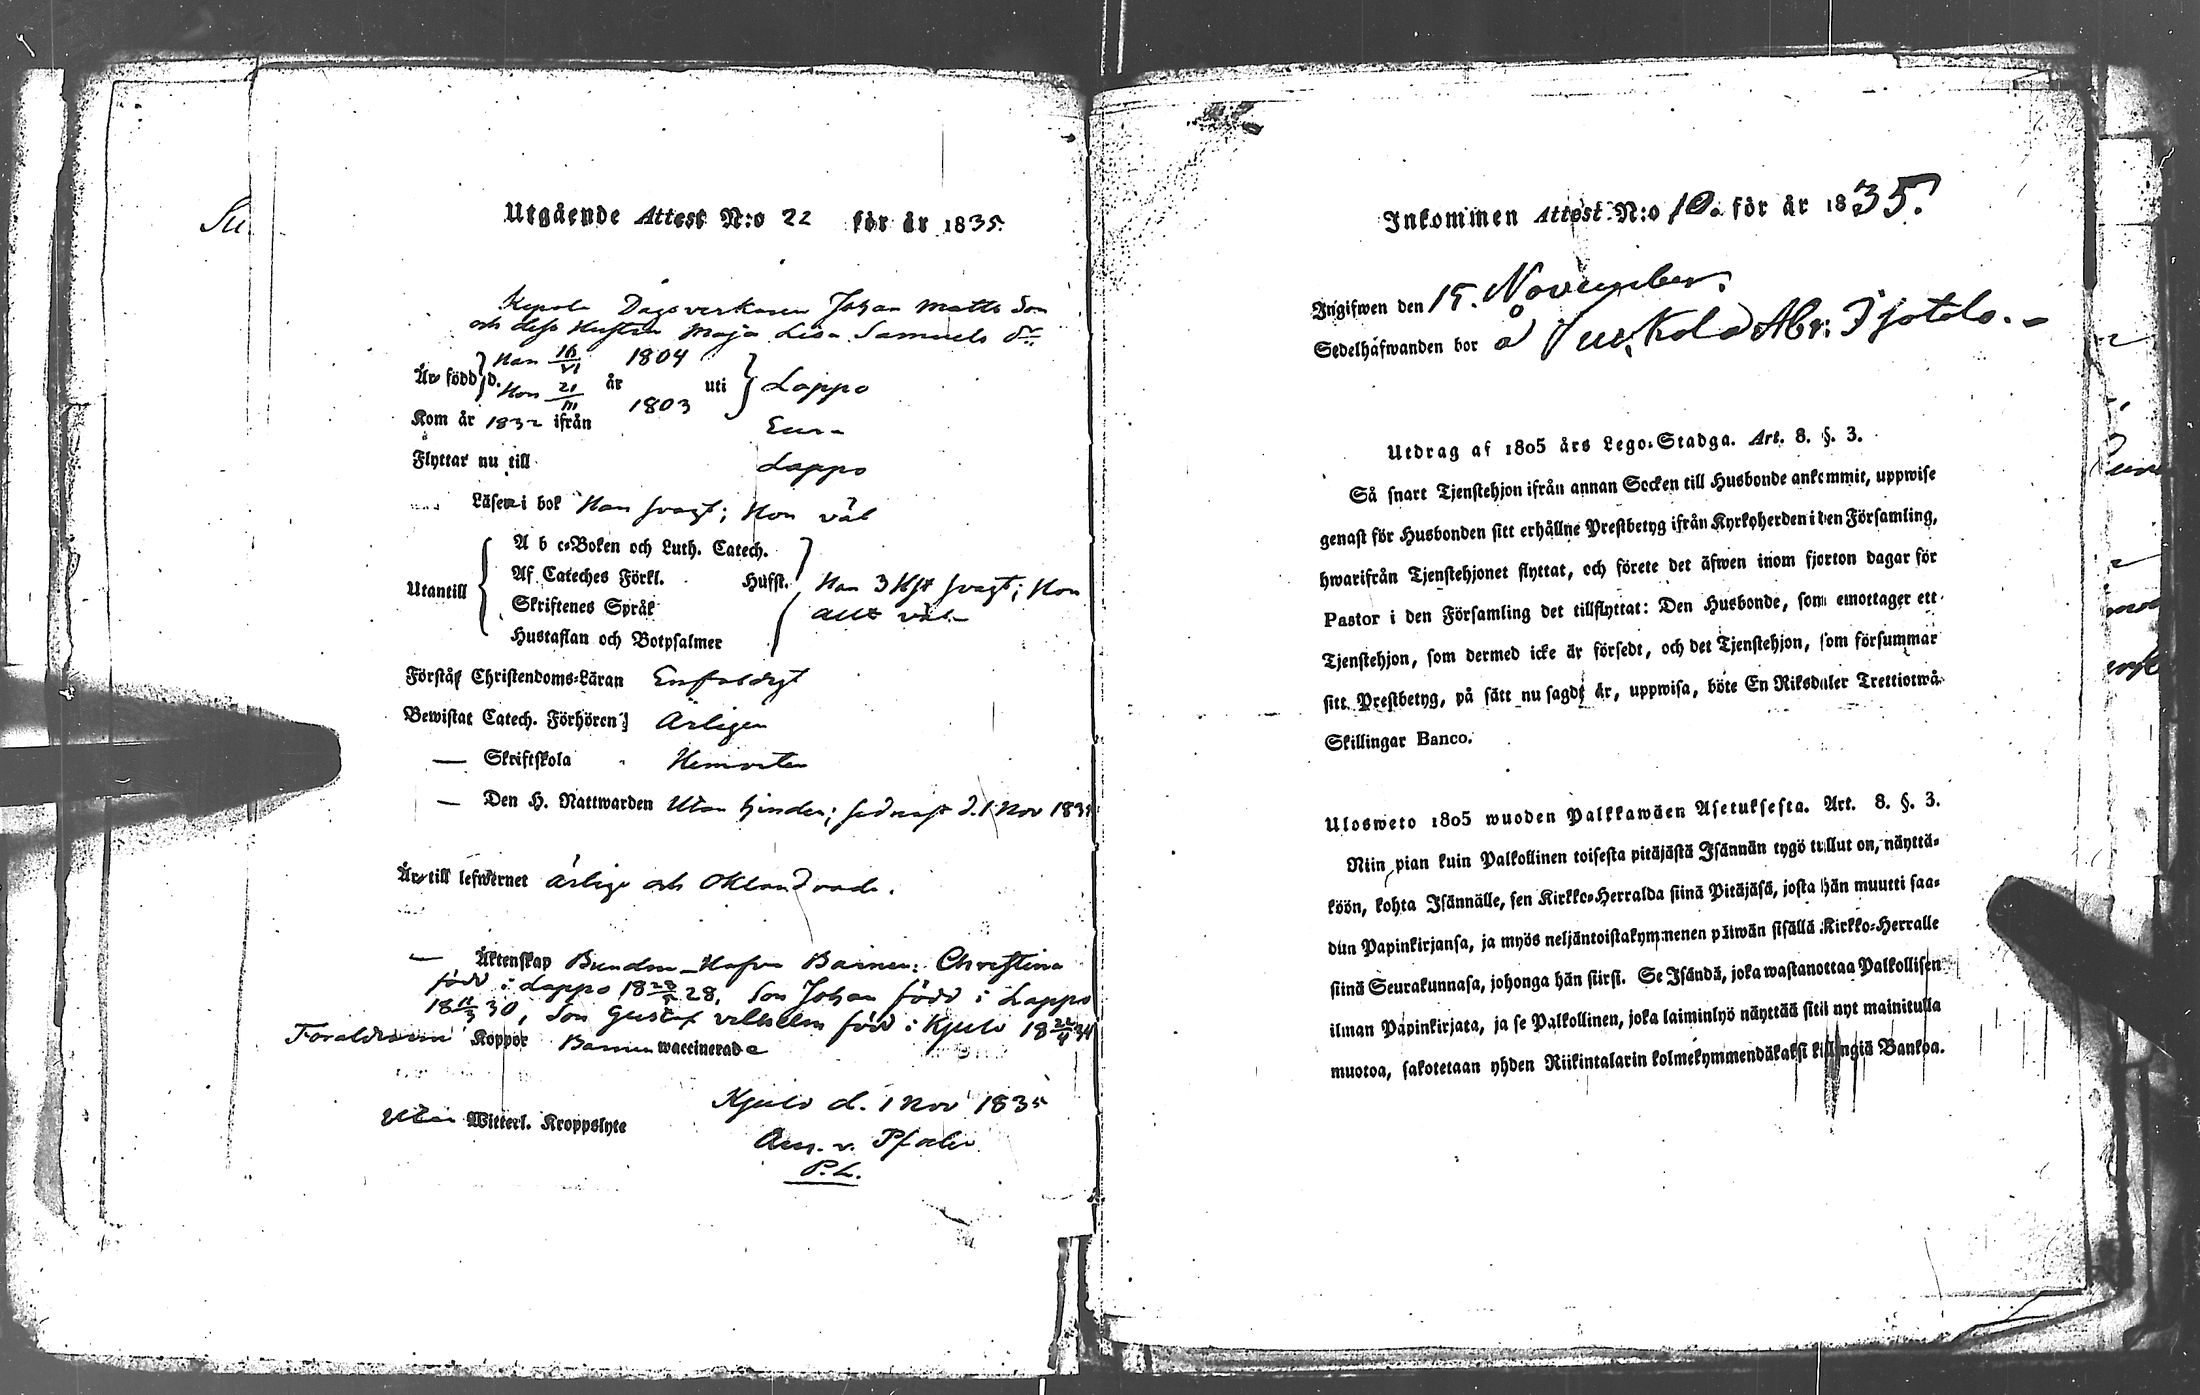 Su
Utgående Attest N:o 22 för år 1835.
Kepola Dagsverkaren Johan Matts Son
och dess Hustru Maja Lisa Samuels dr.
Är född d. Han 16/VI år 1804 uti Lappo
Hon 21/III 1803
Kom år 1832 ifrån Eura
Flyttar nu till Lappo
Läser i bok Han svagt; Hon väl
Utantill
A b c-Boken och Luth. Catech.
Af Cateches Förkl. Hufst. Han 3 Hst svagt; Hon
Skriftenes Språk allt väl
Hustaflan och Botpsalmer
Förstår Christendoms-Läran Enfaldigt
Bewistat Catech. Förhören Årligen
— Skriftskola
— Den H. Nattwarden Utan hinder; sednast d. 1 Nov 1835
Är till lefwernet ärlige och Oklandrade.
— Äktenskap Barnen: Christina
född i Lappo 28, Son Johan född i Lappo
18 11/3 30, Son Gustaf Vilhelm född i Kjulo 34
Föräldrarne Koppor Barnen waccinerade
Kjulo d. 1 Nov 1835
Utan Witterl. Kroppslyte
v. Pfaler
P.L.
Inkommen Attest N:o 10. för år 1835.
Ingifwen den 15. November.
Sedelhafwanden bor å
Utdrag af 1805 års Lego-Stadga. Art. 8. §. 3.
Så snart Tjenstehjon ifrån annan Socken till Husbonde ankommit, uppwise
genast för Husbonden sitt erhållne Prestbetyg ifrån Kyrkoherden i den Församling,
hwarifrån Tjenstehjonet flyttat, och förete det äfwen inom fjorton dagar för
Pastor i den Församling det tillflyttat: Den Husbonde, som emottager ett
Tjenstehjon, som dermed icke är försedt, och det Tjenstehjon, som försummar
sitt Prestbetyg, på sätt nu sagdt är, uppwisa, böte En Riksdaler Trettiotwå
Skillingar Banco.
Ulosweto 1805 wuoden Palkkawäen Asetuksesta. Art. 8. §. 3.
Niin pian kuin Palkollinen toisesta pitäjästä Isännän tygö tullut on, näyttä-
köön, kohta Isännälle, sen Kirkko-Herralda siinä Pitäjäsä, josta hän muutti saa-
dun Papinkirjansa, ja myös neljäntoistakymmenen päiwän sisällä Kirkko-Herralle
siinä Seurakunnasa, johonga hän siirsi. Se Isändä, joka wastanottaa Palkollisen
ilman Papinkirjata, ja se Palkollinen, joka laiminlyö näyttää sitä nyt mainitulla
muotoa, sakotetaan yhden Riikintalarin kolmekymmendäkaksi killingiä Bankoa.